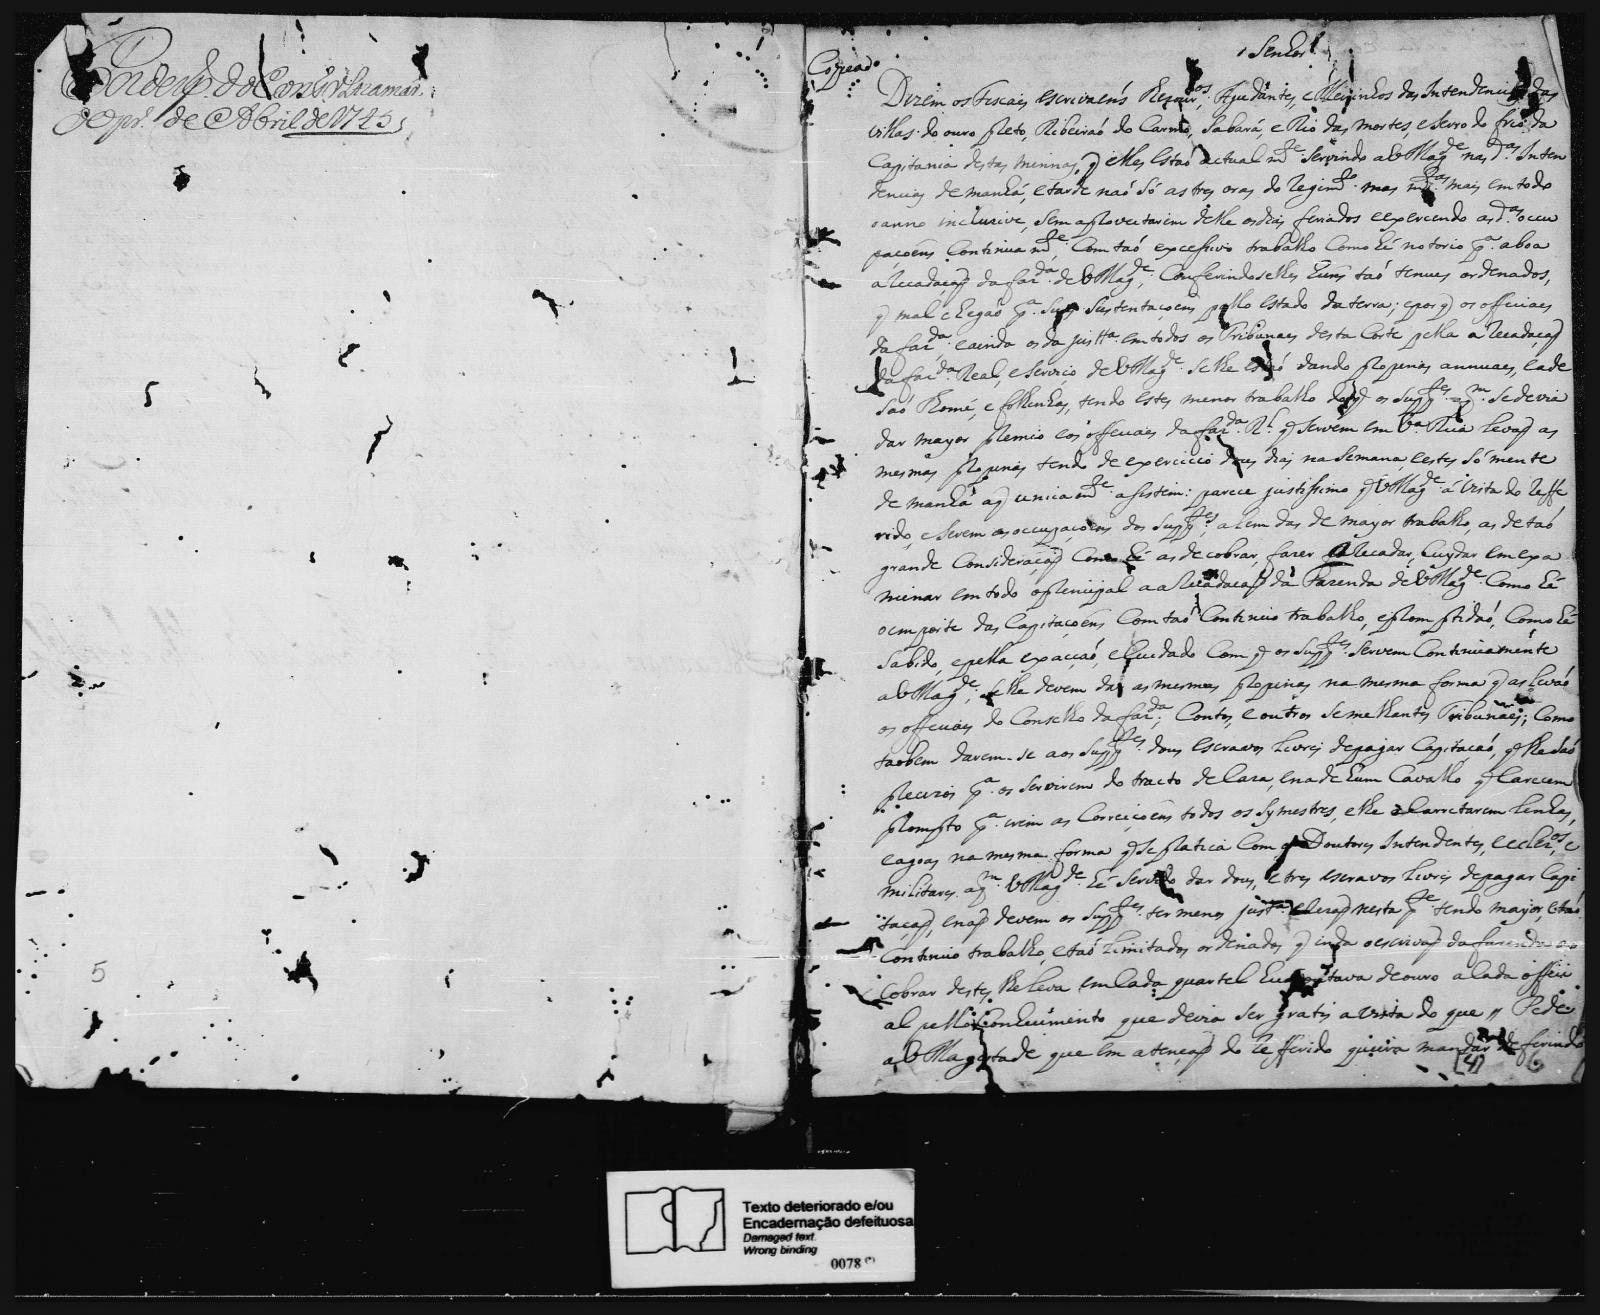 Ordem do Cons.º Ultramar.
de pr.º de Abril de 1745
5
Copeado
Senhor
Dizem os Fiscais escrivaens Thezour.os, Ajudantes, e Meirinhos das Intendencias das
villas do ouro preto, Ribeiraó do Carmo, Sabará, e Rio das mortes, e serro do frio da
Capitania destas minnas, q elles estaó actualm.te servindo a VMag.de nas d.as Inten
dencias de manhá, e tarde naó só as tres oras do regim.to mas m.tas mais em todo
o anno incluzive, sem aproveitarem delle os dias feriados e exercendo as d.as occu
paçoens Continuam.te Com taó excessivo trabalho Como hé notorio p.ª a boa
arecadaçaõ da faz.da de VMag.de, Conferindoselhes huns taó tenues ordenados,
q mal chegaó p.ª suas sustentaçoens pello estado da terra; e por q os officiaes
da faz.da e ainda os da just.ª em todos os Tribunaes desta Corte pella arecadaçaõ
da faz.da Real, e serviço de VMag.de se lhe estaó dando propinas annuaes, e a de
saó Thomé, e folhinhas, tendo estes menor trabalho do q os supp.tes a q.m se devia
dar mayor premio e os officiaes da faz.da R.l q servem em V.ª Rica levaõ as
mesmas propinas tendo de exercicio dous dias na semana, e estes sómente
de manhá a q unicam.te asistem: parece justissimo q VMag.de á vista do reffe
rido, e serem as occupaçoens dos supp.tes alem das de mayor trabalho, as de taó
grande Consideraçaõ Como hé as de cobrar, fazer arecadar, Cuydar em exa
minar em todo o principal a arecadaçaõ da Fazenda de VMag.de Como hé
o emporte das Capitaçoens Com taó Continuo trabalho, e promptidaó, Como hé
sabido, e pella exacçaó, e Cuidado Com q os supp.tes servem Continuamente
a VMag.de, se lhe devem dar as mesmas propinas na mesma forma q as levaó
os officiaes do Conselho da faz.da, Contos, e outros semelhantes Tribunaes; Como
taobem darem-se aos supp.tes dous escravos livres de pagar Capitaçaó, q lhe saó
precizos p.ª os servirem do tracto de Caza, e na de hum Cavallo q Carecem
prompto p.ª irem as Correiçoens todos os symestres, e lhe Carretarem lenhas,
e agoas na mesma forma q se pratica Com os Doutores Intendentes, e ecler.os, e
militares a q.m VMag.de hé servido dar dous, e tres escravos livres de pagar Capi
taçaõ, e naõ devem os supp.tes ter menos just.ª e rezaõ nesta p.te tendo mayor, e taó
Continuo trabalho, e taó Limitados ordenados q inda o escrivaõ da fazenda ao
Cobrar destes lhe leva em Cada quartel hua oitava de ouro a Cada offici
al pello Conhecimento que devia ser gratis a vista do que Pede
a VMagestade que em atençaõ do refferido queira mandar deferindo
[4] 6
Texto deteriorado e/ou
Encadernação defeituosa
Damaged text.
Wrong binding
0078